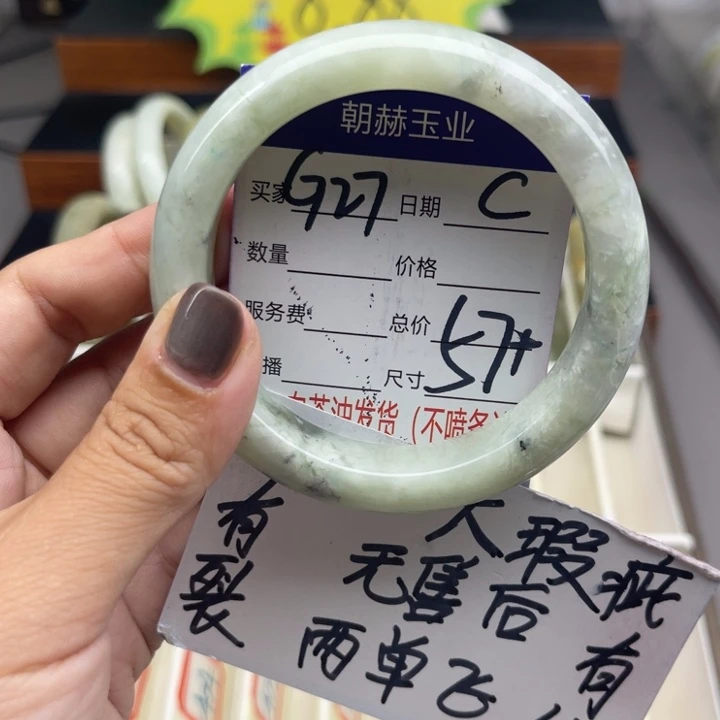 朝赫玉业
买家 G27 日期 C
数量 价格
服务费 总价
播 尺寸 57+
白茶油发货 (不喷务
有裂
大瑕疵
无售后
有
两单飞